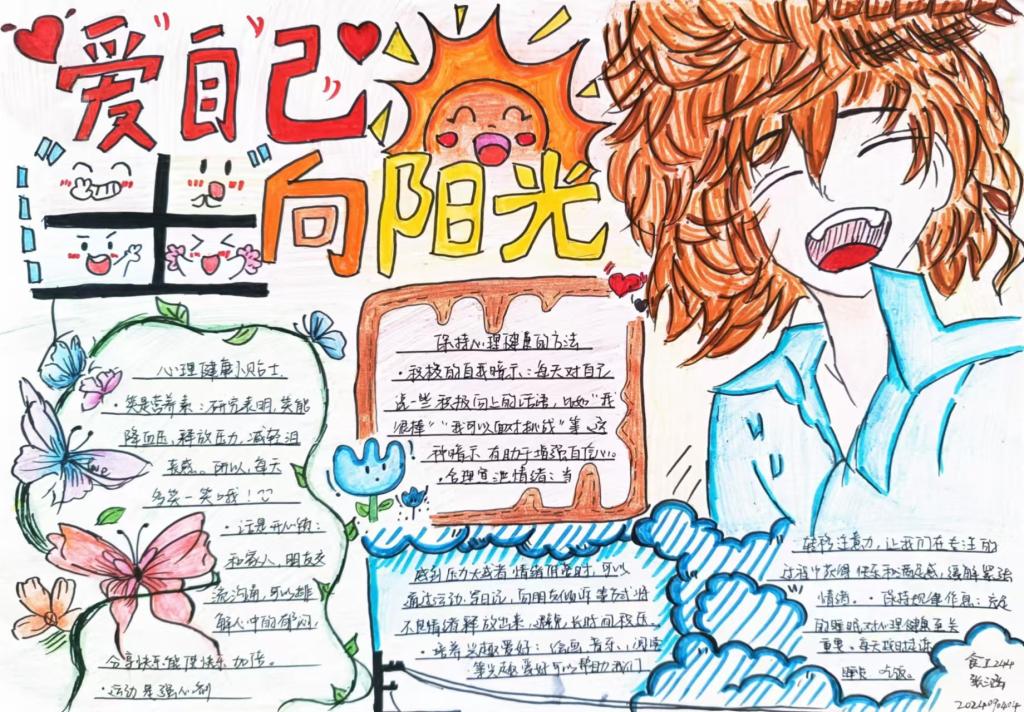 爱自己
向阳光
心理健康小贴士
·笑是营养素：研究表明，笑能
降血压，释放压力，减轻沮
丧感。所以，每天
多笑一笑哦！
·话是开心锁：
和家人、朋友交
流沟通，可以排
解心中的郁闷，
分享快乐能使快乐加倍。
·运动是强心剂
保持心理健康的方法
·积极的自我暗示：每天对自己
说一些积极向上的话语，比如“我
很棒”“我可以面对挑战”等，这
种暗示有助于增强自信心。
·合理宣泄情绪：当
感到压力大或者情绪低落时，可以
通过运动、写日记、向朋友倾诉等方式将
不良情绪释放出来，避免长时间积压。
·培养兴趣爱好：绘画、音乐、阅读
等兴趣爱好可以帮助我们
转移注意力，让我们在专注的
过程中获得快乐和满足感，缓解紧张
情绪。·保持规律作息：充足
的睡眠对心理健康至关
重要。每天
睡觉、吃饭。
食工244
2024090404